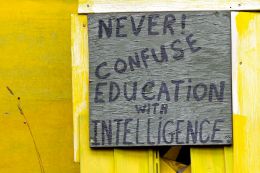 NEVER!
CONFUSE
EDUCATION
WITH
INTELLIGENCE